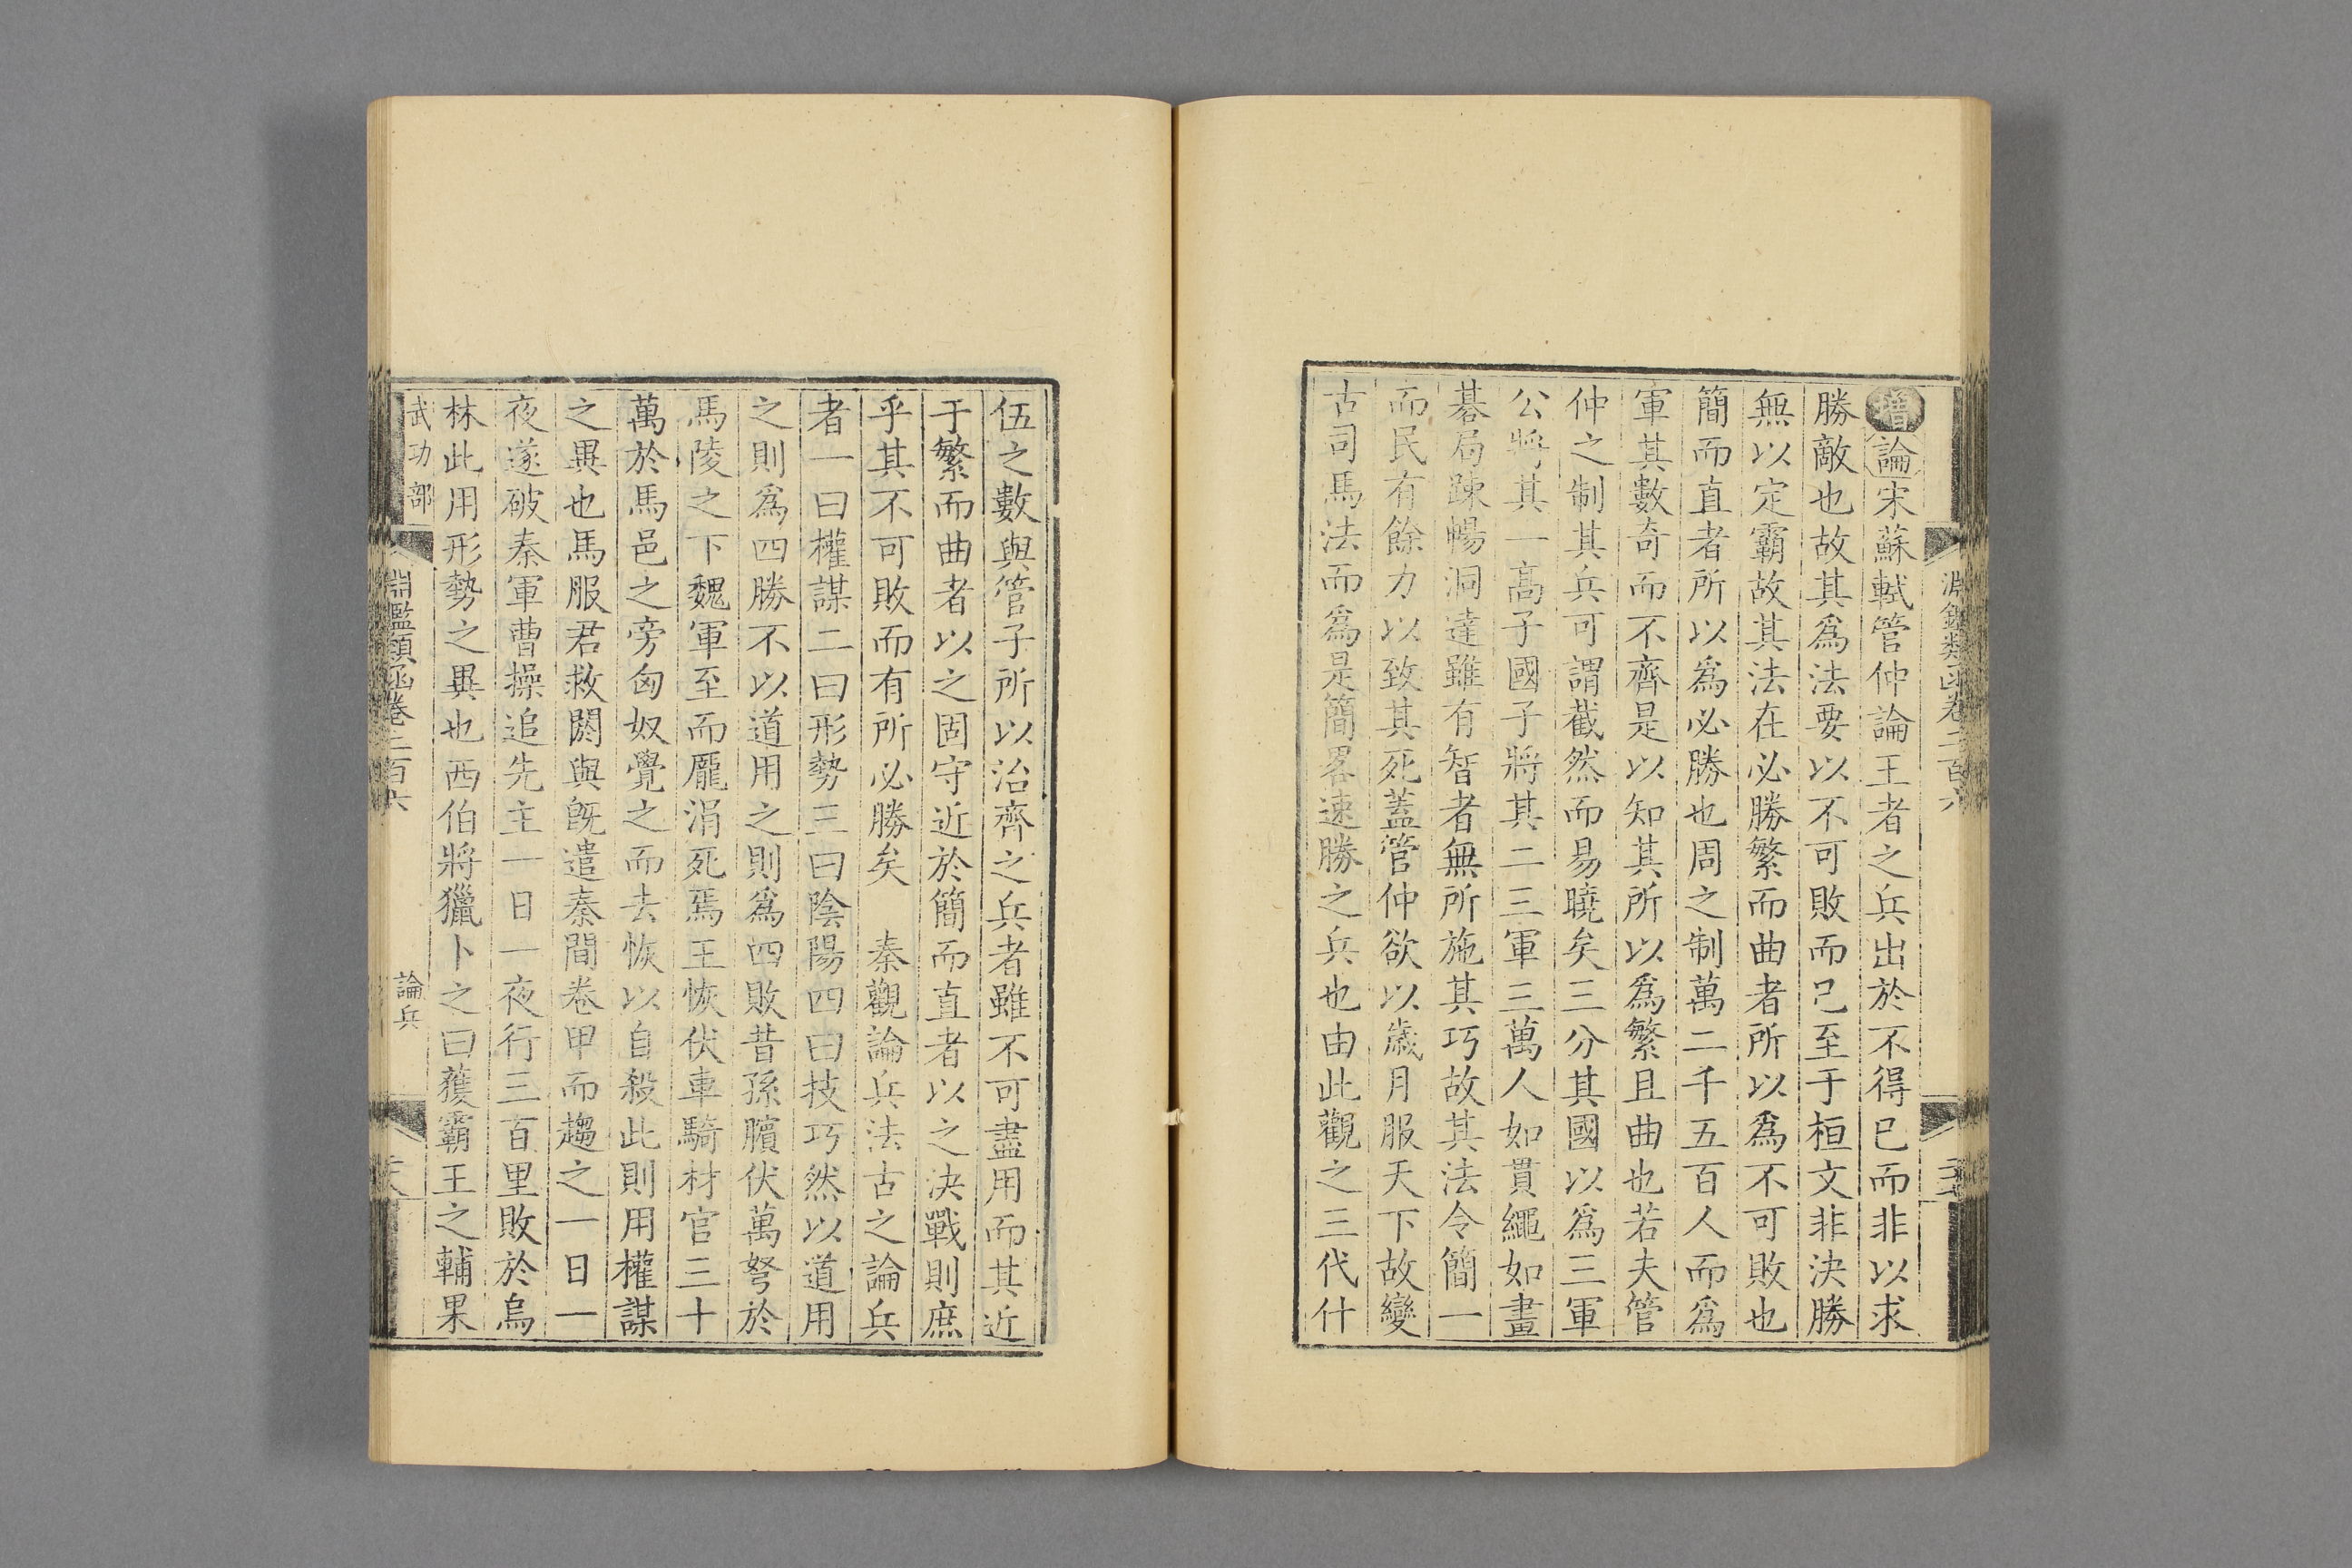 淵鑑類函卷二百六
增論宋蘇軾管仲論王者之兵出於不得已而非以求
勝敵也故其爲法要以不可敗而已至于桓文非決勝
無以定霸故其法在必勝繁而曲者所以爲不可敗也
簡而直者所以爲必勝也周之制萬二千五百人而爲
軍其數奇而不齊是以知其所以爲繁且曲也若夫管
仲之制其兵可謂截然而易曉矣三分其國以爲三軍
公將其一高子國子將其二三軍三萬人如貫繩如畫
碁局疎暢洞達雖有智者無所施其巧故其法令簡一
而民有餘力以致其死蓋管仲欲以歲月服天下故變
古司馬法而爲是簡畧速勝之兵也由此觀之三代什
伍之數與管子所以治齊之兵者雖不可盡用而其近
于繁而曲者以之固守近於簡而直者以之決戰則庶
乎其不可敗而有所必勝矣　秦觀論兵法古之論兵
者一曰權謀二曰形勢三曰陰陽四曰技巧然以道用
之則爲四勝不以道用之則爲四敗昔孫臏伏萬弩於
馬陵之下魏軍至而龐涓死焉王恢伏車騎材官三十
萬於馬邑之旁匈奴覺之而去恢以自殺此則用權謀
之異也馬服君救閼與旣遣秦間卷甲而趨之一日一
夜遂破秦軍曹操追先主一日一夜行三百里敗於烏
林此用形勢之異也西伯將獵卜之曰獲霸王之輔果
武功部
淵鑑類函卷二百六
論兵